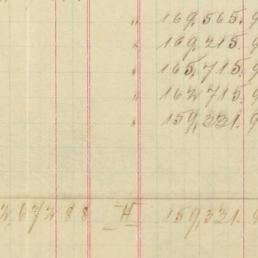 " 169,565. 9
" 169,215. 9
" 165,715. 9
" 162,715. 9
" 159,321. 9
2,672 88 H 159,321. 9